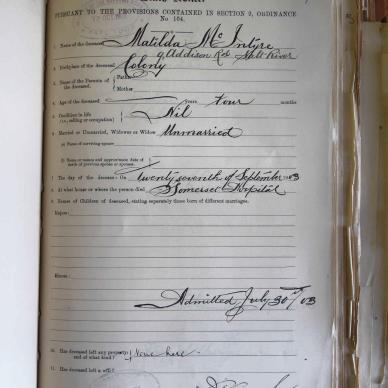 PURSUANT TO THE PROVISIONS CONTAINED IN SECTION 9, ORDINANCE
No 104.
1. Name of the deceased Matilda McIntyre
9 Addison Rd Salt River
2. Birthplace of the deceased Colony
3. Names of the Parents of the deceased
Father
Mother
4. Age of the deceased years four months
5. Condition in life
(i.e., calling or occupation) Nil
6. Married or Unmarried, Widower or Widow Unmarried
(a) Name of surviving spouse
(b) Name or names and approximate date of
death of previous spouse or spouses
7. The day of the decease: On Twenty seventh of September 1903
8. At what house or where the person died Somerset Hospital
9. Names of Children of deceased, stating separately those born of different marriages.
Majors:
Minors:
Admitted July 30th 03
10. Has deceased left any property
and of what kind? None here.
11. Has deceased left a will?